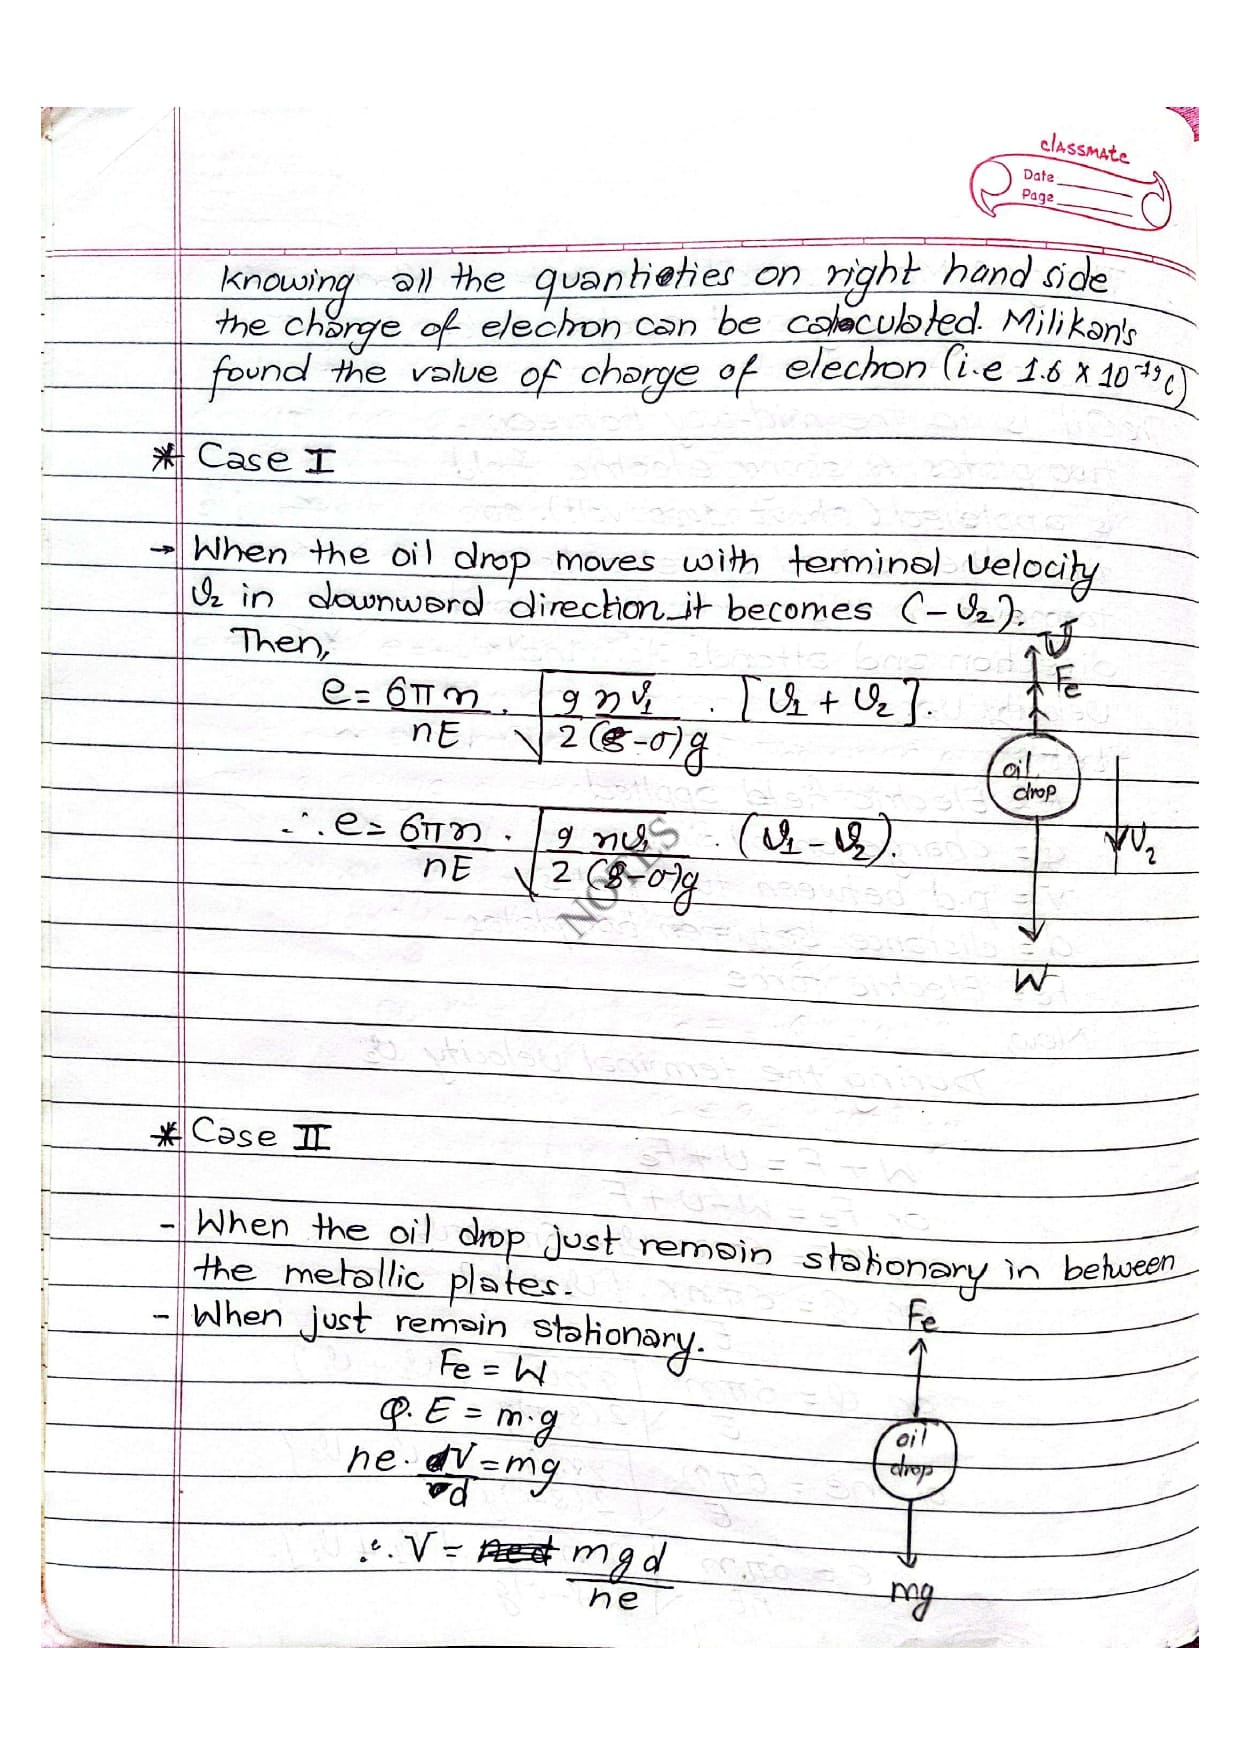 classmate
Date
Page
Knowing all the quantieties on right hand side
the charge of electron can be calculated. Milikan's
found the value of charge of electron (i.e 1.6 x 10⁻¹⁹c)
* Case I
→ When the oil drop moves with terminal velocity
v₂ in downward direction it becomes (-v₂).
Then,
e = 6πη/nE . √(9ηv₁/2(ρ-σ)g) . [v₁ + v₂].
∴ e = 6πη/nE . √(9ηv₁/2(ρ-σ)g) . (v₁ - v₂).
U
Fe
oil
drop
v₂
W
NOTES
* Case II
- When the oil drop just remain stationary in between
the metallic plates.
- When just remain stationary.
Fe = W
Q. E = m.g
ne. V/d = mg
∴ V = mgd/ne
Fe
oil
drop
mg